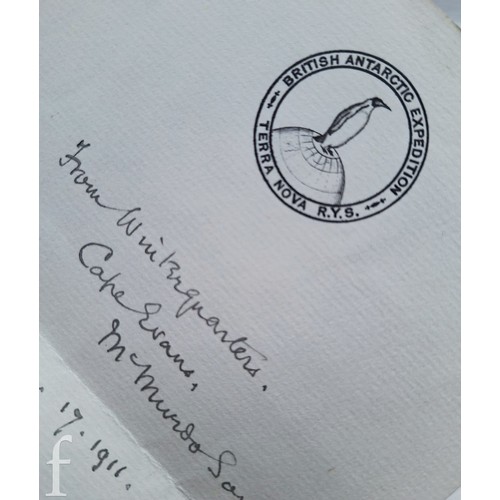 BRITISH ANTARCTIC EXPEDITION
TERRA NOVA R.Y.S.
From Winterquarters.
Cape Evans.
McMurdo
17.1911.
f